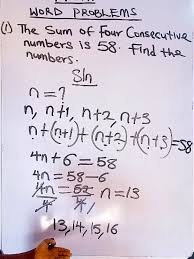 WORD PROBLEMS
(1) The Sum of Four Consecutive
numbers is 58. Find the
numbers.
Sln
n = ?
n, n+1, n+2, n+3
n+(n+1)+(n+2)+(n+3)=58
4n+6 = 58
4n = 58-6
4n = 52 n = 13
4 4
13, 14, 15, 16